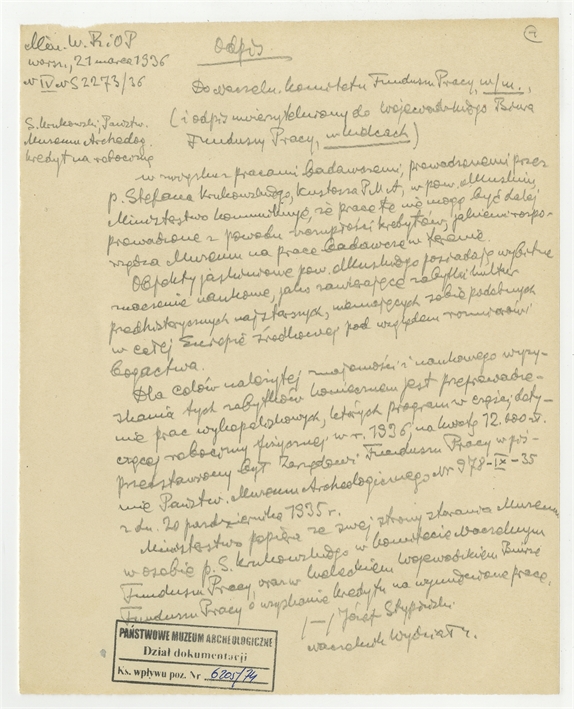 Min. W. R i O P
warsz., 21 marca 1936
N IV N S 2273/36
Odpis
7
S. Krukowski, Państw.
Muzeum Archeolog.
kredyt na robociznę
Do Naczeln. Komitetu Funduszu Pracy, w/m.,
(i odpis uwierzytelniony do Wojewódzkiego Biura
Funduszu Pracy, w Kielcach)
W związku z pracami badawczemi, prowadzonemi przez
p. Stefana Krukowskiego, Kustosza P.M.A., w pow. Olkuskim,
Ministerstwo komunikuje, że prace te nie mogą być dalej
prowadzone z powodu szczupłości kredytów, jakiemi rozpo-
rządza Muzeum na prace badawcze w terenie.
Objekty jaskiniowe pow. Olkuskiego posiadają wybitne
znaczenie naukowe, jako zawierające zabytki kultur
przedhistorycznych najstarszych, niemających sobie podobnych
w całej Europie środkowej pod względem rozmiarów i
bogactwa.
Dla celów należytej znajomości i naukowego wyzy-
skania tych zabytków koniecznem jest przeprowadze-
nie prac wykopaliskowych, których program w części doty-
czącej robocizny fizycznej w r. 1936, na kwotę 12.000 zł.
przedstawiony był Zarządowi Funduszu Pracy w piś-
mie Państw. Muzeum Archeologicznego Nr 978-IX-35
z dn. 20 października 1935 r.
Ministerstwo popiera ze swej strony starania Muzeum
w osobie p. S. Krukowskiego w Komitecie Naczelnym
Funduszu Pracy, oraz w Kieleckiem Wojewódzkiem Biurze
Funduszu Pracy o uzyskanie kredytu na wymienione prace.
(—) Józef
naczelnik Wydziału.
PAŃSTWOWE MUZEUM ARCHEOLOGICZNE
Dział dokumentacji
Ks. wpływu poz. Nr 6205/74